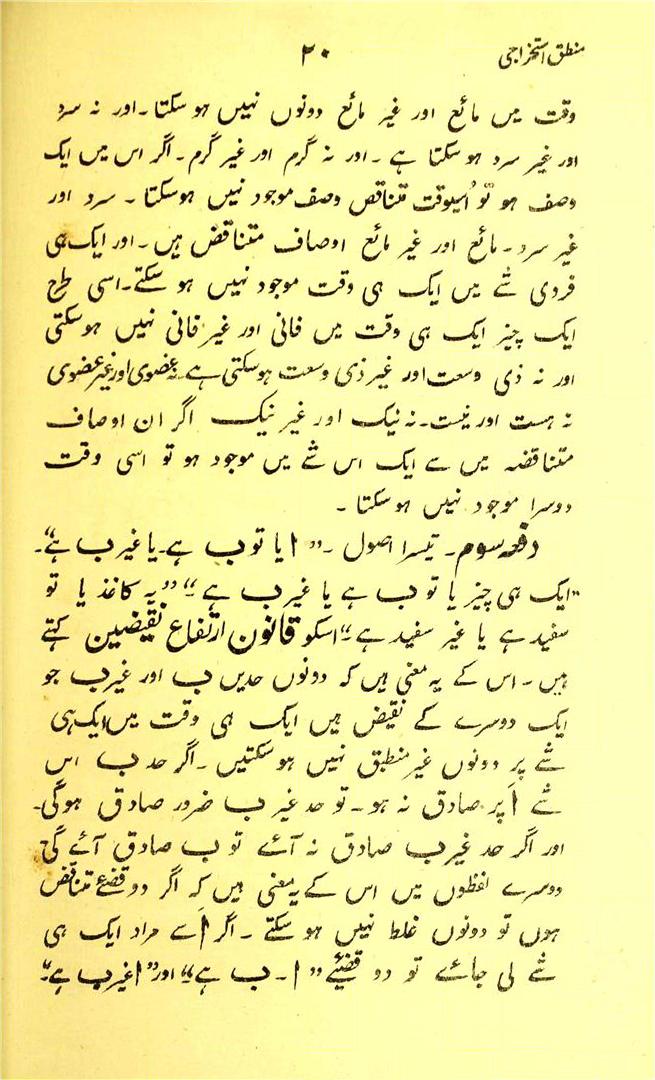 منطق استخراجی
۲۰
وقت میں مائع اور غیر مائع دونوں نہیں ہو سکتا۔ اور نہ سرد
اور غیر سرد ہو سکتا ہے ۔ اور نہ گرم اور غیر گرم ۔ اگر اس میں ایک
وصف ہو تو اُسیوقت متناقص وصف موجود نہیں ہوسکتا ۔ سرد اور
غیر سرد ۔ مائع اور غیر مائع اوصاف متناقض ہیں ۔ اور ایک ہی
فردی شے میں ایک ہی وقت موجود نہیں ہو سکتے۔ اسی طرح
ایک چیز ایک ہی وقت میں فانی اور غیر فانی نہیں ہوسکتی
اور نہ ذی وسعت اور غیر ذی وسعت ہوسکتی ہے۔ نہ عضوی اور غیر عضوی
نہ ہست اور نیست۔ نہ نیک اور غیر نیک اگر ان اوصاف
متناقضہ میں سے ایک اس شے میں موجود ہو تو اسی وقت
دوسرا موجود نہیں ہوسکتا ۔
دفعہ سوم۔ تیسرا اصول ۔ ” ا یا تو ب ہے۔ یا غیر ب ہے“۔
”ایک ہی چیز یا تو ب ہے یا غیر ب ہے“ ” یہ کاغذ یا تو
سفید ہے یا غیر سفید ہے“ اسکو قانون ارتفاع نقیضین کہتے
ہیں ۔ اس کے یہ معنی ہیں کہ دونوں حدیں ب اور غیر ب جو
ایک دوسرے کے نقیض ہیں ایک ہی وقت میں ایک ہی
شے پر دونوں غیر منطبق نہیں ہوسکتیں ۔ اگر حد ب اس
شے اَ پر صادق نہ ہو ۔ تو حد غیر ب ضرور صادق ہوگی۔
اور اگر حد غیر ب صادق نہ آئے تو ب صادق آئے گی
دوسرے لفظوں میں اس کے یہ معنی ہیں کہ اگر دو قضئے متناقص
ہوں تو دونوں غلط نہیں ہو سکتے ۔ اگر اَ سے مراد ایک ہی
شے لی جائے تو دو قضئے ” ا ۔ ب ہے“ اور ” ا غیر ب ہے“